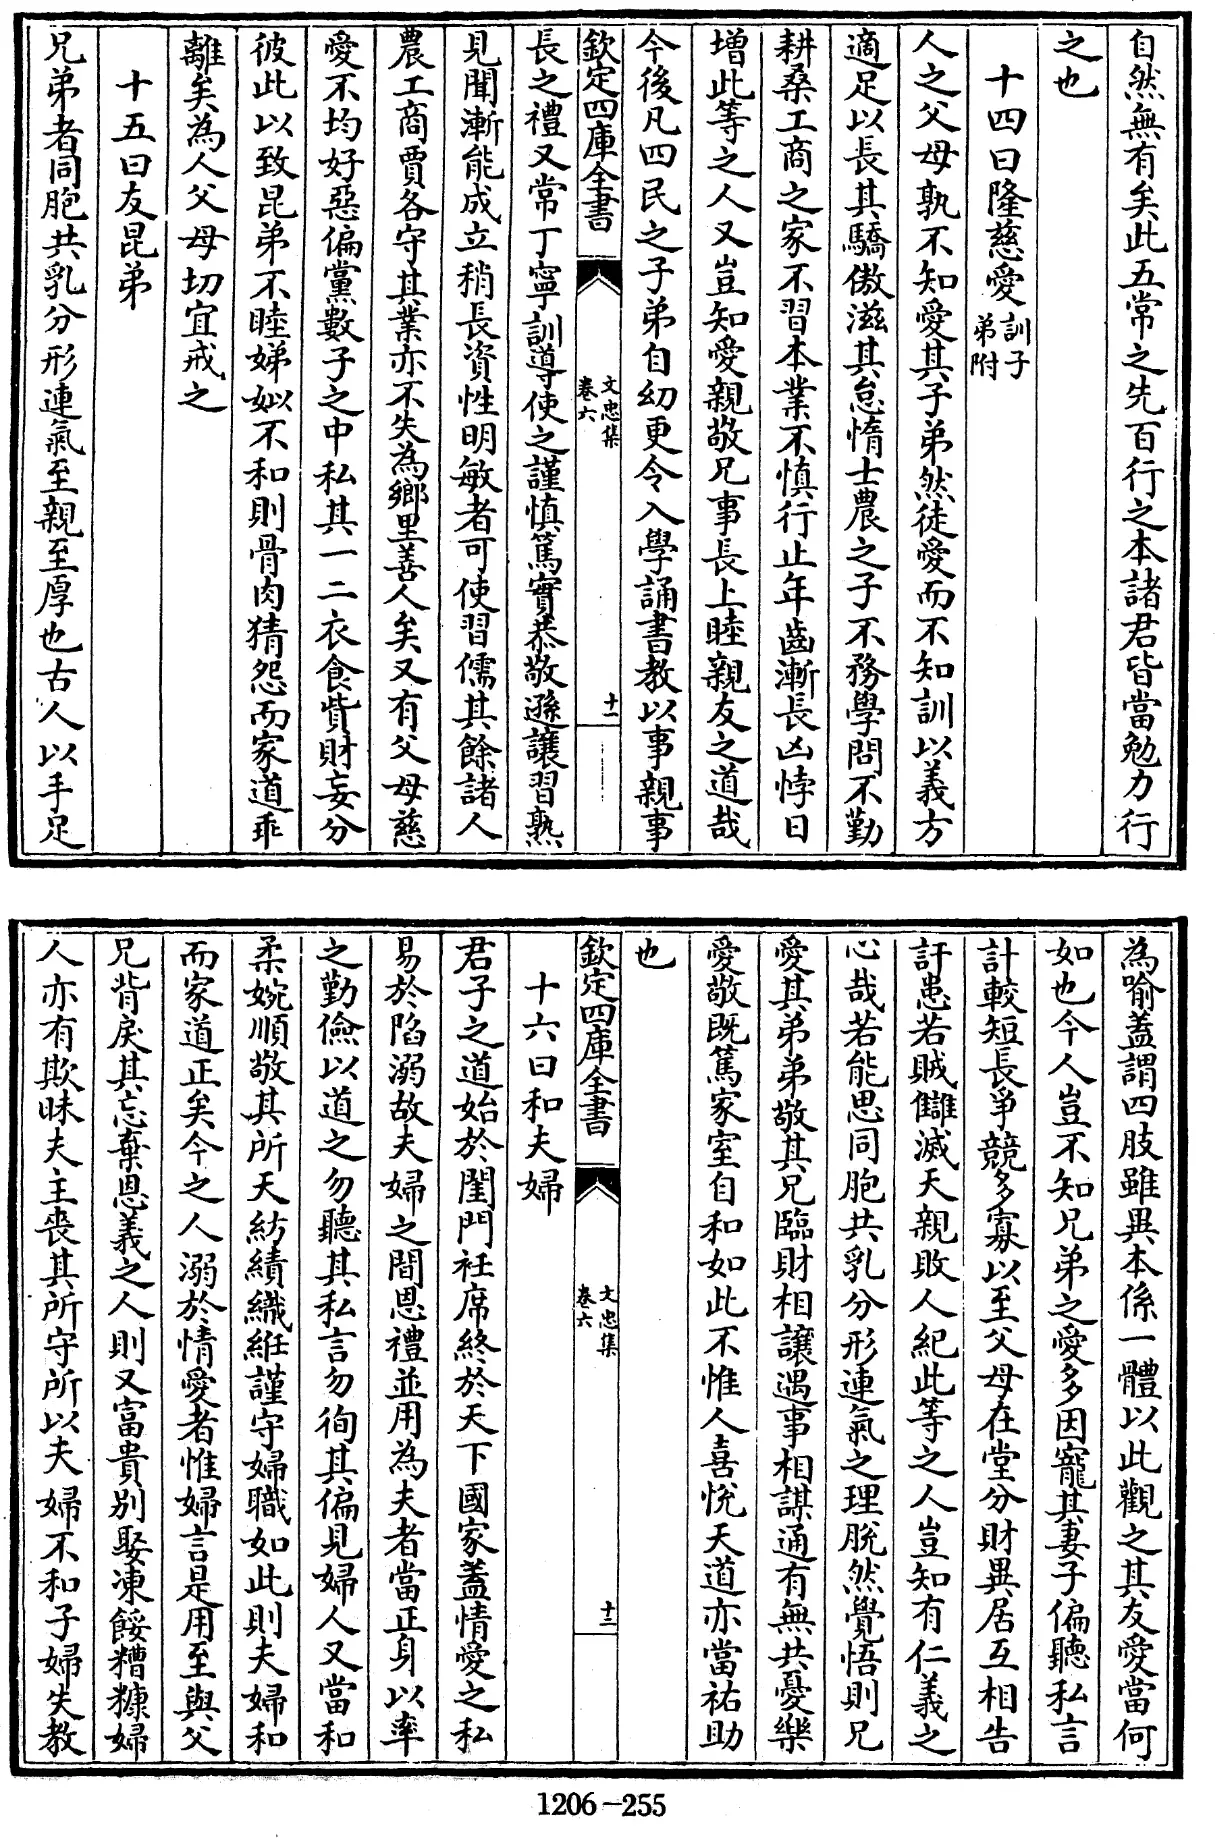 自然無有矣此五常之先百行之本諸君皆當勉力行
之也
十四曰隆慈愛訓子弟附
人之父母孰不知愛其子弟然徒愛而不知訓以義方
適足以長其驕傲滋其怠惰士農之子不務學問不勤
耕桑工商之家不習本業不慎行止年齒漸長凶悖日
增此等之人又豈知愛親敬兄事長上睦親友之道哉
今後凡四民之子弟自幼更令入學誦書教以事親事
欽定四庫全書
文忠集
卷六
十一
長之禮又常丁寧訓導使之謹慎篤實恭敬遜讓習熟
見聞漸能成立稍長資性明敏者可使習儒其餘諸人
農工商賈各守其業亦不失為鄉里善人矣又有父母慈
愛不均好惡偏黨數子之中私其一二衣食貲財妄分
彼此以致昆弟不睦娣姒不和則骨肉猜怨而家道乖
離矣為人父母切宜戒之
十五曰友昆弟
兄弟者同胞共乳分形連氣至親至厚也古人以手足
為喻蓋謂四肢雖異本係一體以此觀之其友愛當何
如也今人豈不知兄弟之愛多因寵其妻子偏聽私言
計較短長爭競多寡以至父母在堂分財異居互相告
訐恚若賊讎滅天親敗人紀此等之人豈知有仁義之
心哉若能思同胞共乳分形連氣之理脫然覺悟則兄
愛其弟弟敬其兄臨財相讓遇事相謀通有無共憂樂
愛敬既篤家室自和如此不惟人喜悅天道亦當祐助
也
欽定四庫全書
文忠集
卷六
十二
十六曰和夫婦
君子之道始於閨門衽席終於天下國家蓋情愛之私
易於陷溺故夫婦之間恩禮並用為夫者當正身以率
之勤儉以道之勿聽其私言勿徇其偏見婦人又當和
柔婉順敬其所天紡績織紝謹守婦職如此則夫婦和
而家道正矣今之人溺於情愛者惟婦言是用至與父
兄背戾其忘棄恩義之人則又富貴別娶凍餒糟糠婦
人亦有欺昧夫主喪其所守所以夫婦不和子婦失教
1206-255